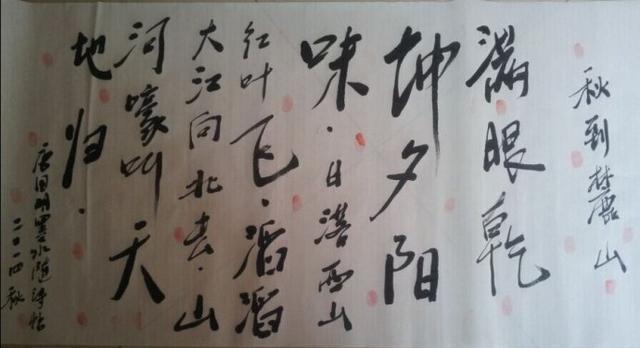 秋到麓山
满眼乾
坤夕阳
味·日落西山
红叶飞·滔滔
大江向北去·山
河嚎叫天
地归·
唐国明墨水随译帖
二〇一四秋